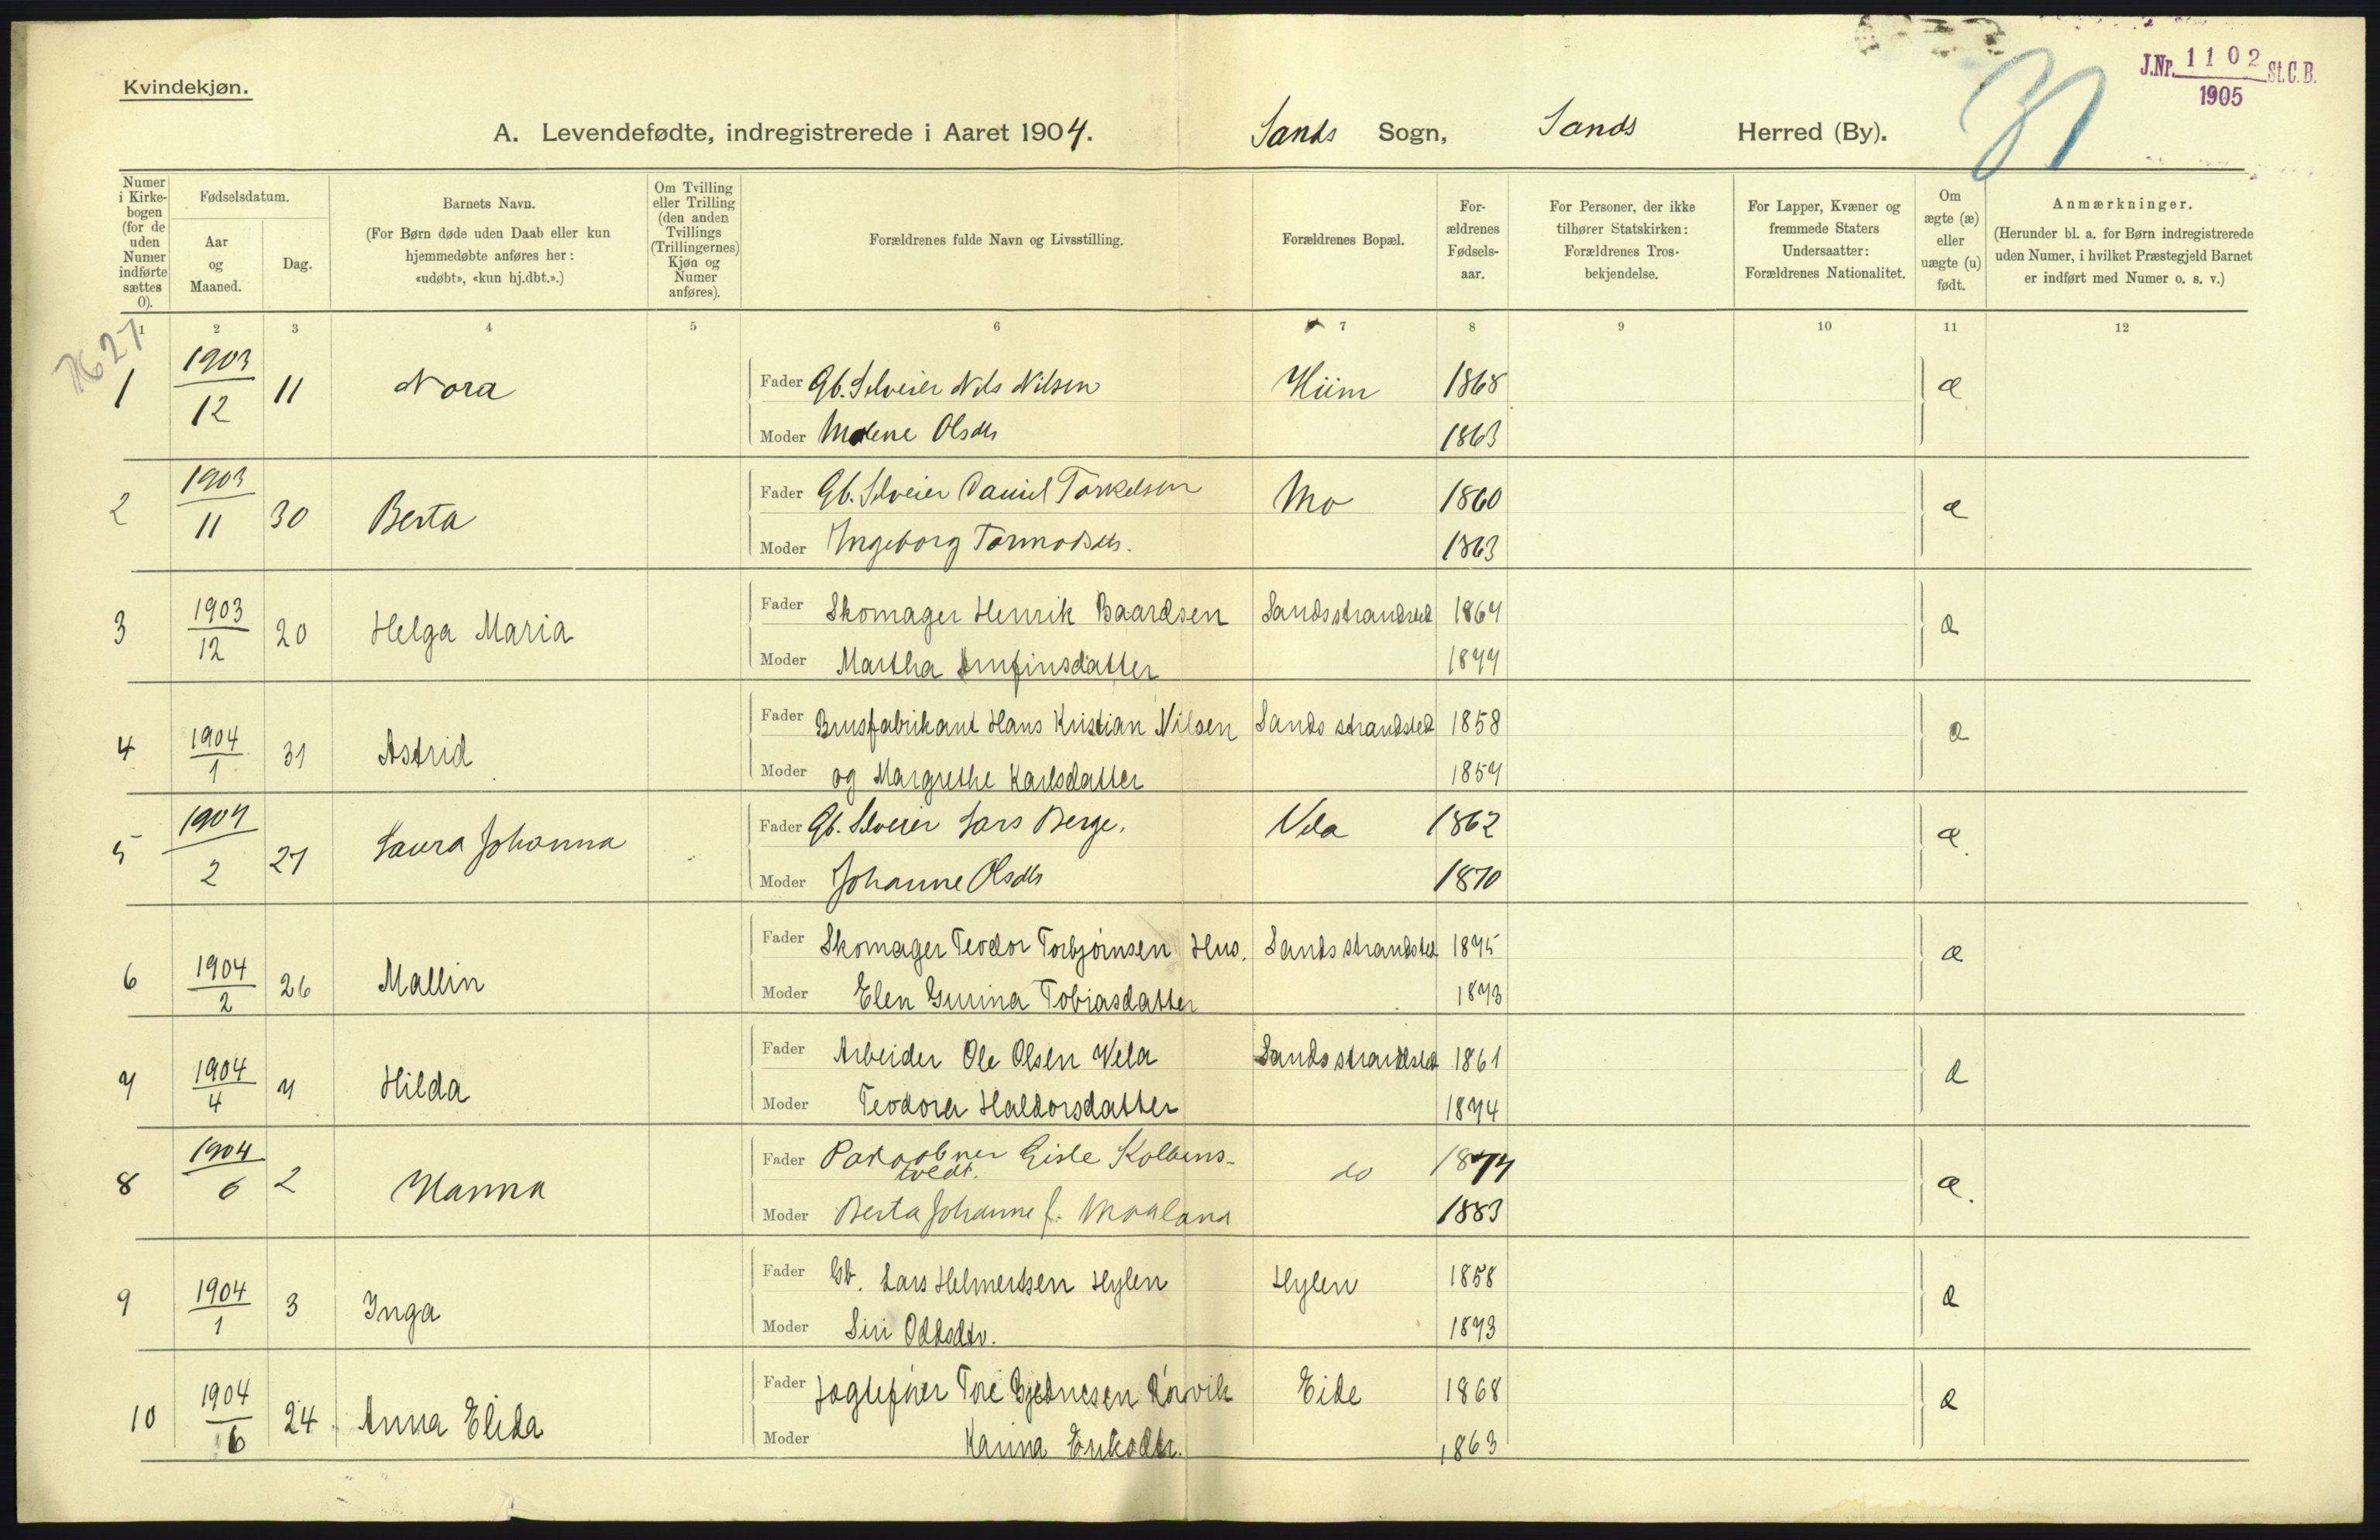 Kvindekjøn.
J.Nr. 1102 St.C.B.
1905
31
A. Levendefødte, indregistrerede i Aaret 1904. Sands Sogn, Sands Herred (By).
Numer i Kirkebogen (for de uden Numer indførte sættes 0).
Fødselsdatum.
Aar og Maaned.
Dag.
Barnets Navn.
(For Børn døde uden Daab eller kun hjemmedøbte anføres her: «udøbt», «kun hj.dbt.».)
Om Tvilling eller Trilling (den anden Tvillings (Trillingernes) Kjøn og Numer anføres).
Forældrenes fulde Navn og Livsstilling.
Forældrenes Bopæl.
For-ældrenes Fødsels-aar.
For Personer, der ikke tilhører Statskirken: Forældrenes Tros-bekjendelse.
For Lapper, Kvæner og fremmede Staters Undersaatter: Forældrenes Nationalitet.
Om ægte (æ) eller uægte (u) født.
Anmærkninger.
(Herunder bl. a. for Børn indregistrerede uden Numer, i hvilket Præstegjeld Barnet er indført med Numer o. s. v.)
1 2 3 4 5 6 7 8 9 10 11 12
7627
1 1903/12 11 Nora Fader Gb. Selveier Nils Nilsen Hiim 1868 æ
Moder Malene Olsdtr 1863
2 1903/11 30 Berta Fader Gb. Selveier Daniel Torkelsen Mo 1860 æ
Moder Ingeborg Tormodsdtr. 1863
3 1903/12 20 Helga Maria Fader Skomager Henrik Baardsen Sandsstrandsted 1867 æ
Moder Martha Arnfinsdatter 1877
4 1904/1 31 Astrid Fader Brusfabrikant Hans Kristian Nilsen Sands strandsted 1858 æ
Moder og Margrethe Karlsdatter 1857
5 1904/2 27 Laura Johanna Fader Gb. Selveier Lars Berge. Vela 1862 æ.
Moder Johanne Olsdtr 1870
6 1904/2 26 Mallin Fader Skomager Teodor Torbjørnsen Hus. Sands strandsted 1875 æ
Moder Elen Gurina Tobiasdatter 1873
7 1904/4 7 Hilda Fader Arbeider Ole Olsen Vela Sandsstrandsted 1861 æ
Moder Teodora Haldorsdatter 1874
8 1904/6 2 Hanna Fader Eisle Kolbens-
tvedt. do 1877 æ.
Moder Berta Johanne f. Maaland 1883
9 1904/1 3 Inga Fader Gb. Lars Helmertsen Hylen Hylen 1858 æ
Moder Siri Oddsdtr. 1873
10 1904/6 24 Anna Elida Fader Jægtefører Tore Eide 1868 æ
Moder Karina Eriksdtr. 1863